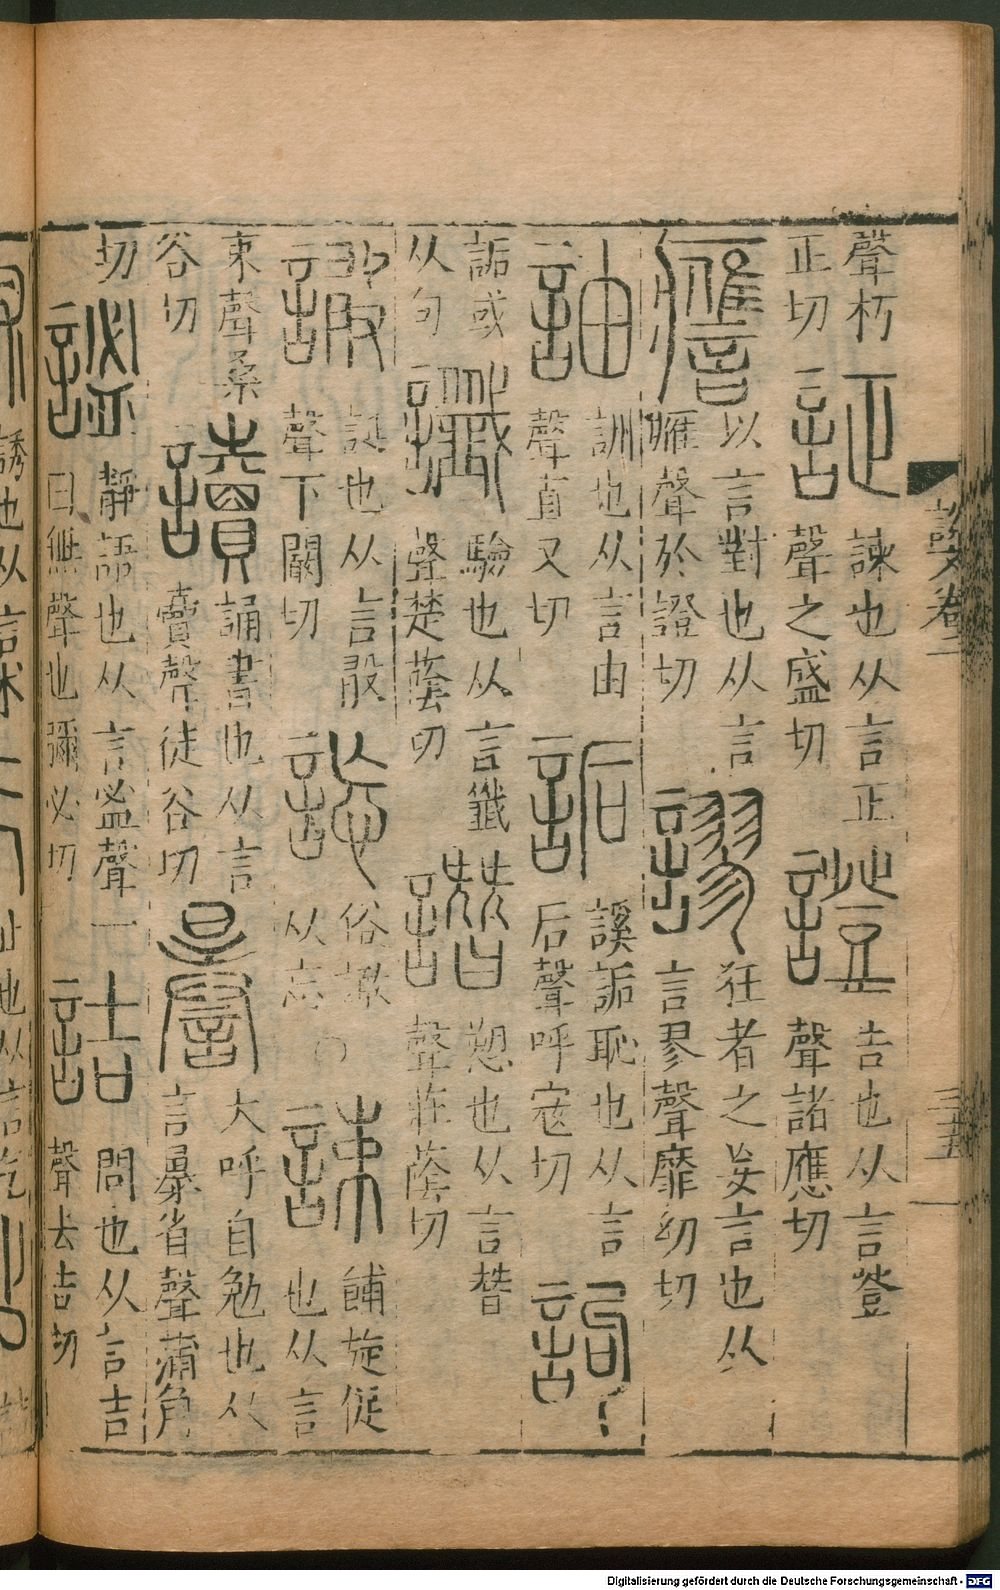 聲朽
正切
証
諫也从言正
聲之盛切
證
告也从言登
聲諸應切
譍
以言對也从言
雁聲於證切
謬
狂者之妄言也从
言翏聲靡幼切
訓也从言由
聲直又切
詬
謑詬恥也从言
后聲呼寇切
訽
詬或
从句
讖
驗也从言韱
聲楚蔭切
譖
愬也从言朁
聲莊蔭切
誕也从言
聲下闞切
俗
从忘
誎
餔旋促
也从言
東聲桑
谷切
讀
誦書也从言
賣聲徒谷切
謈
大呼自勉也从
言㬥省聲蒲角
切
謐
靜語也从言盇聲一
曰無聲也彌必切
詰
問也从言吉
聲去吉切
說文卷三
三五
Digitalisierung gefördert durch die Deutsche Forschungsgemeinschaft - DFG